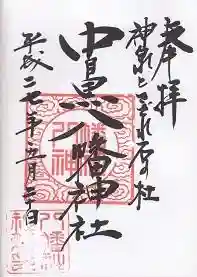 奉拝
神泉とさざれ石の社
中目黒八幡神社
平成二七年五月二十日